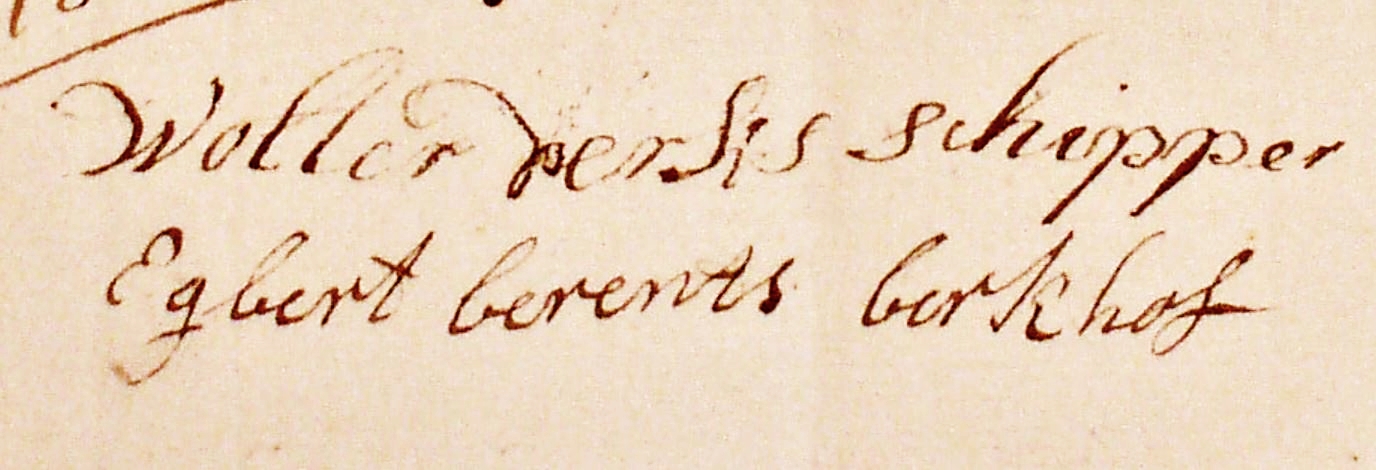 Wolter derkis schipper
Egbert berents berkhof